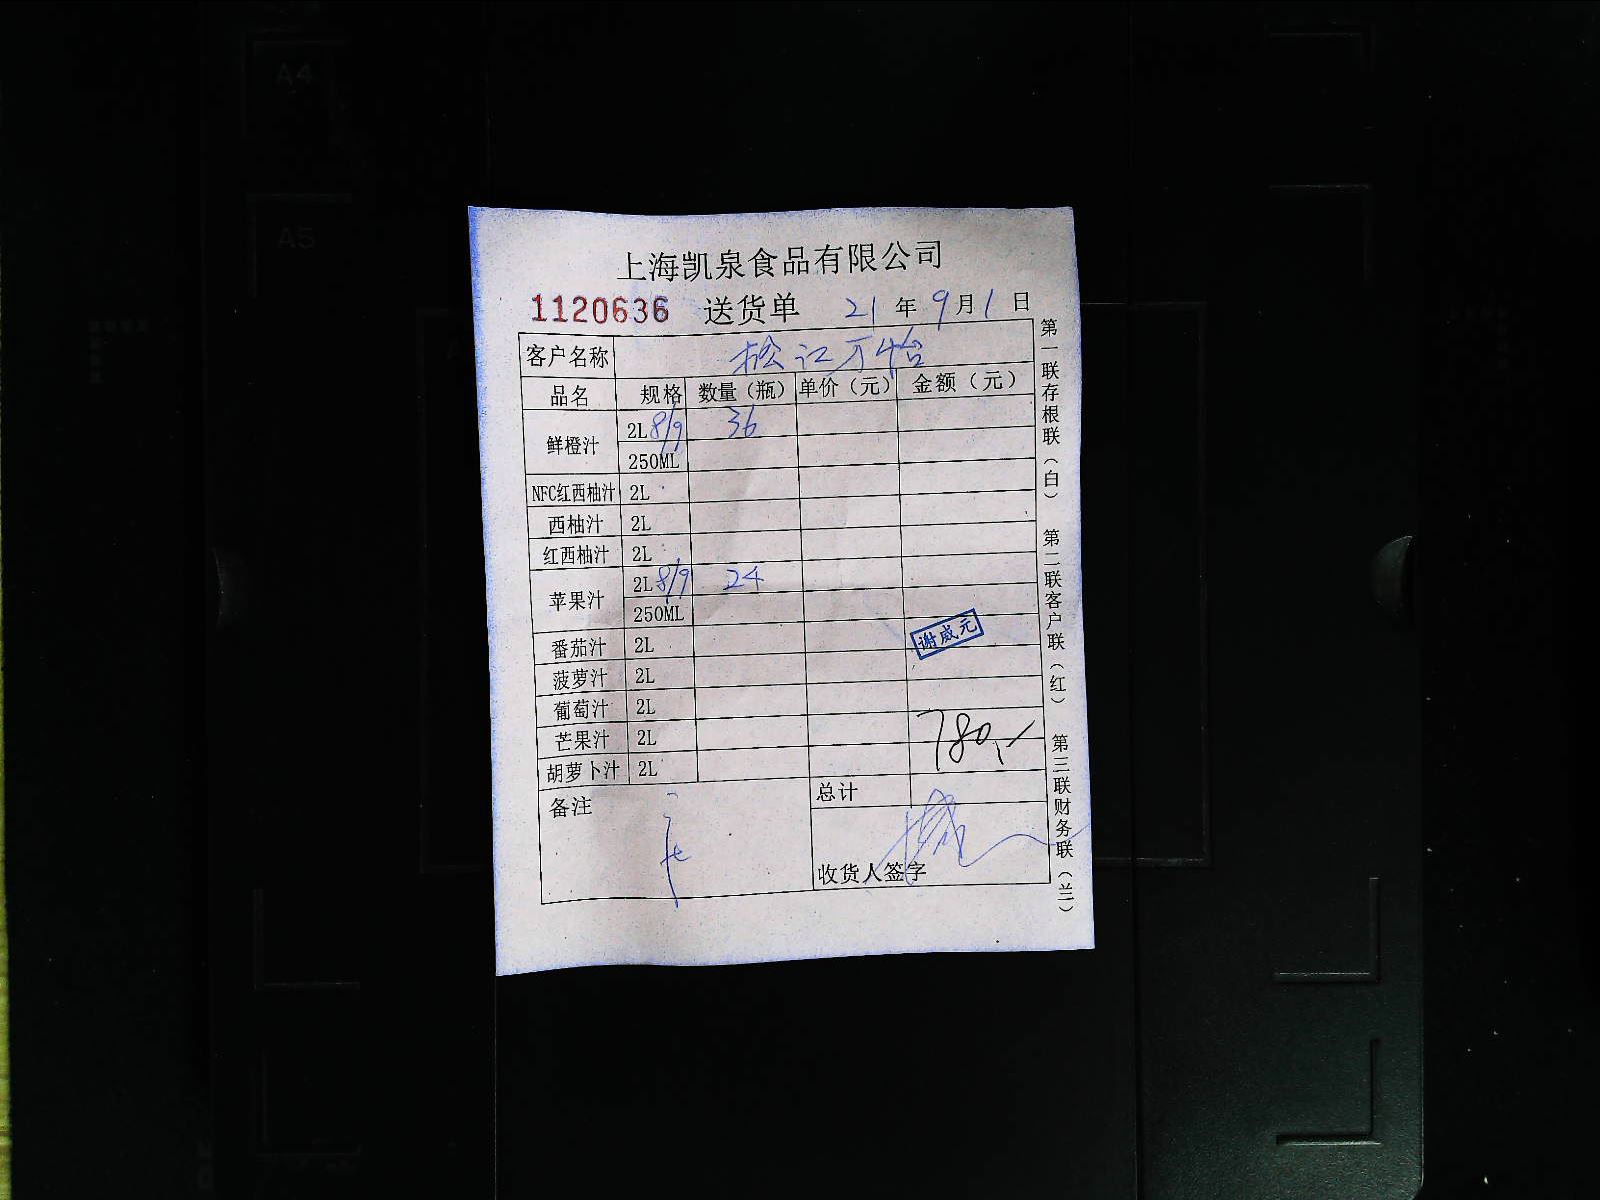 A4
A5
上海凯泉食品有限公司
1120636 送货单 21年9月1日
客户名称 松江万怡
品名 规格 数量（瓶） 单价（元） 金额（元）
鲜橙汁 2L 8/9 36
250ML
NFC红西柚汁 2L
西柚汁 2L
红西柚汁 2L
苹果汁 2L 8/9 24
250ML
番茄汁 2L
谢威元
菠萝汁 2L
葡萄汁 2L
芒果汁 2L
780,-
胡萝卜汁 2L
备注 总计
收货人签字
第一联存根联（白） 第二联客户联（红） 第三联财务联（兰）